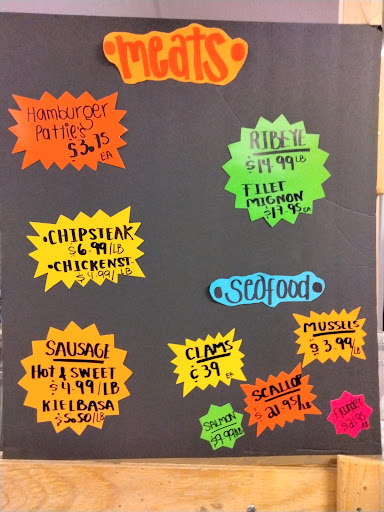 meats
Hamburger
Pattie's
$3.75
EA
RIBEYE
$14.99 LB
FILET
MIGNON
$17.95 EA
•CHIPSTEAK
$6.99/LB
•CHICKENST
$4.99/LB
Seafood
SAUSAGE
Hot & SWEET
$4.99/LB
KIELBASA
$5.50/LB
CLAMS
¢39
EA
MUSSELS
$3.99/LB
SCALLOP
$21.95/LB
SALMON
$9.99/LB